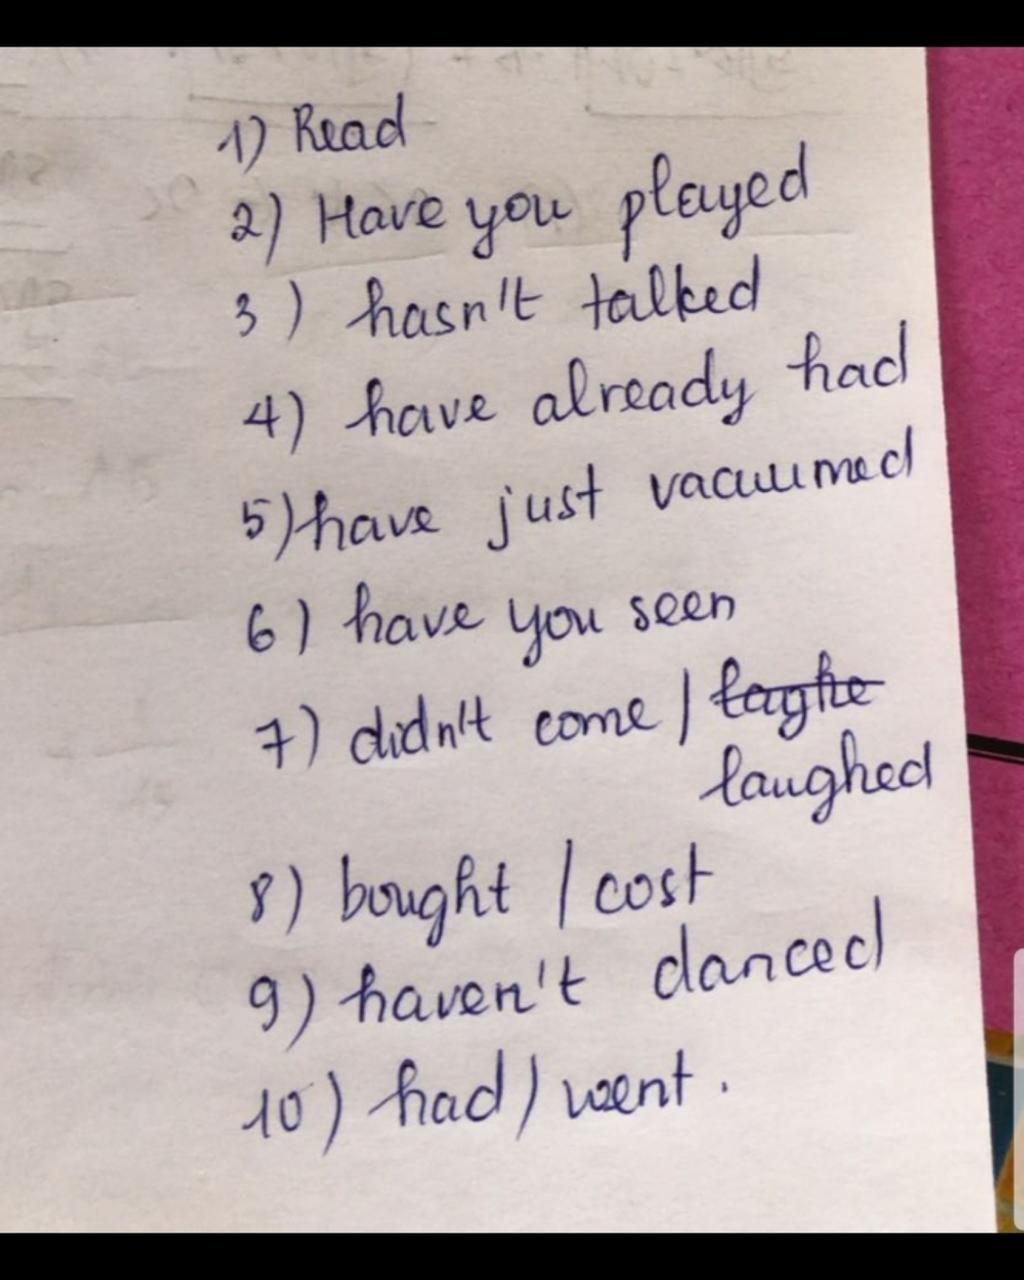 1) Read
2) Have you played
3) hasn't talked
4) have already had
5) have just vacuumed
6) have you seen
7) didn't come / laghe
laughed
8) bought / cost
9) haven't danced
10) had / went.